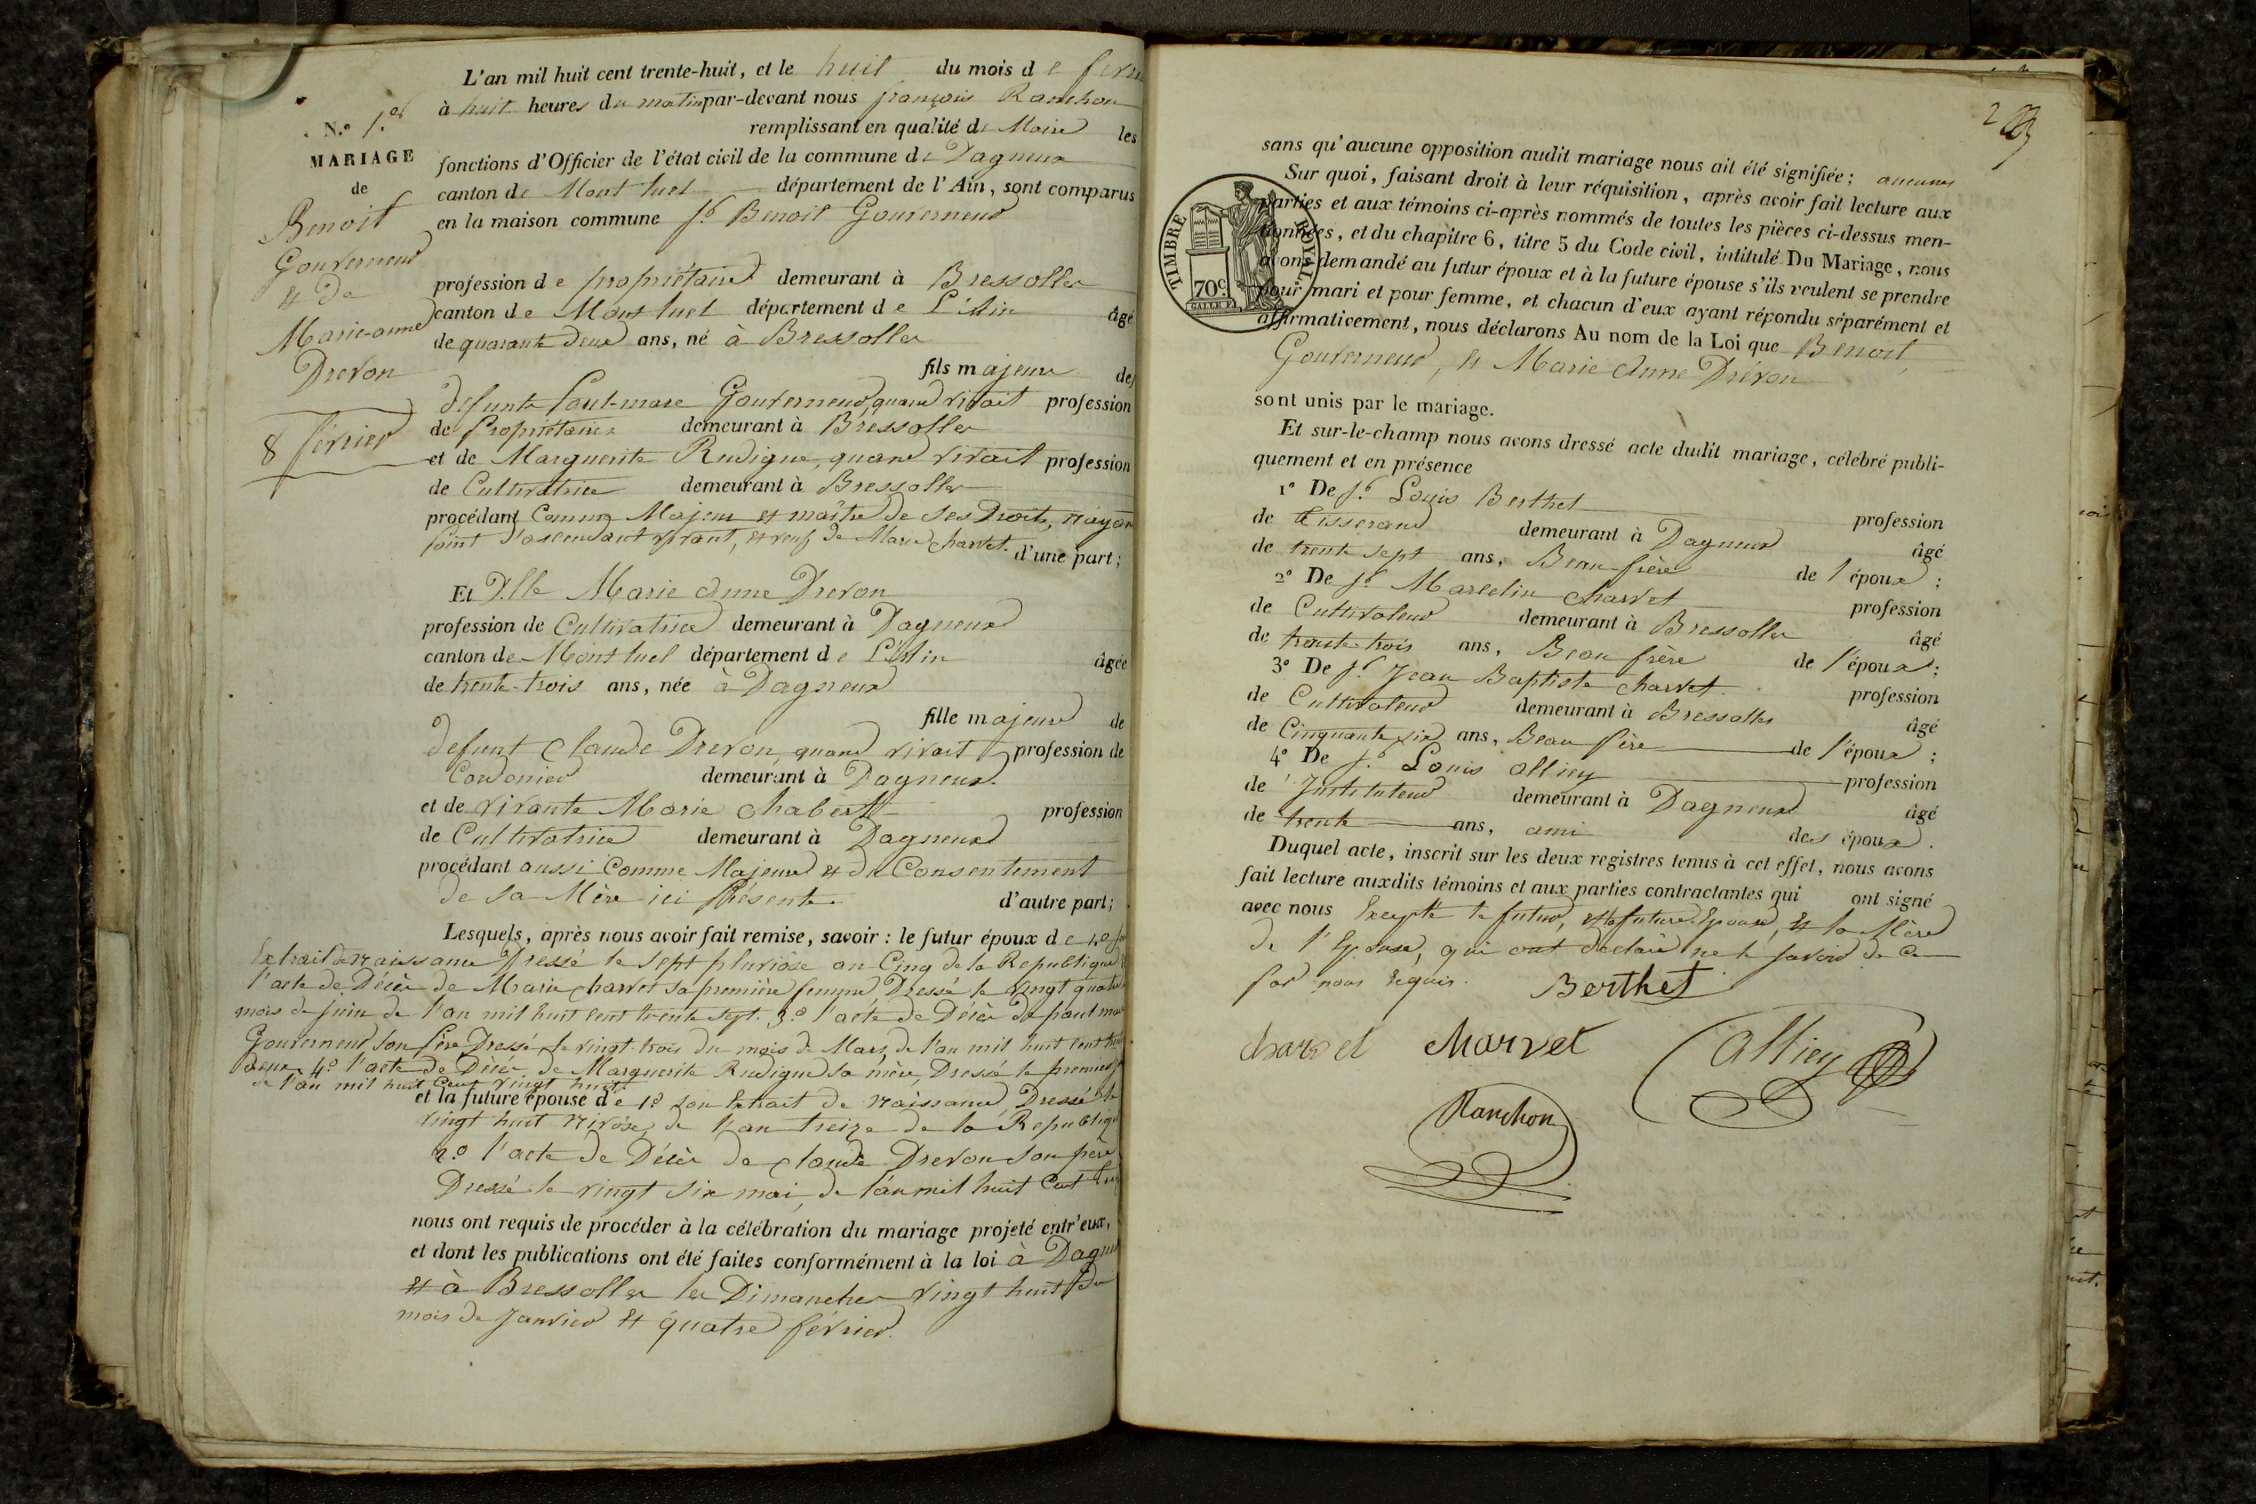 L'an mil huit cent trente-huit, et le huit du mois de
à huit heures du matin par-devant nous françois Ranchon
remplissant en qualité de Maire les
fonctions d'Officier de l'état civil de la commune de Dagneux
canton de Mont luel département de l'Ain, sont comparus
en la maison commune Sr. Benoit Gouverneur
N.º 1.er
MARIAGE
de
Benoit
Gouverneur
& De
Marie-anne
Drevon
8 février
profession de propriétaire demeurant à Bressolles
canton de Mont luel département de L'Ain âgé
de quarante deux ans, né à Bressolles
fils majeur des
defunts Paul-marc Gouverneur, quand vivait profession
de Propriétaire demeurant à Bressolles
et de Marguerite Rudigue, quand vivait profession
de Cultivatrice demeurant à Bressolles
procédant Comme Majeur et maître de ses Droits, n'ayant
point d'ascendant vivant, et veuf de Marie charvet. d'une part;
Et Dlle Marie Anne Drevon
profession de Cultivatrice demeurant à Dagneux
canton de Mont luel département de L'Ain âgée
de trente-trois ans, née à Dagneux
fille majeure de
defunt Claude Drevon, quand vivait profession de
Cordonier demeurant à Dagneux.
et de vivante Marie Chabert profession
de Cultivatrice demeurant à Dagneux
procédant aussi Comme Majeure & du Consentement
de sa Mère ici Présente. d'autre part;
Lesquels, après nous avoir fait remise, savoir: le futur époux de 1.º son
Extrait de naissance Dressé le Sept pluviôse an Cinq de la Republique
l'acte de Décès de Marie charvet sa première femme Dressé le vingt quatre
mois de Juin de l'an mil huit Cent trente sept. 3.º l'acte de Décès de paul marc
Gouverneur Son Père Dressé le vingt-trois du mois de Mars, de l'an mil huit Cent
4.º l'acte de Décès de Marguerite Rudigue sa mère, Dressé le premier
de l'an mil huit Cent vingt huit
et la future épouse de 1.º son Extrait de naissance, Dressé le
vingt huit nivôse, de l'an treize de la Republique
2.º l'acte de Décès de claude Drevon son père
Dressé le vingt six mai, de l'an mil huit Cent
nous ont requis de procéder à la célébration du mariage projeté entr'eux,
et dont les publications ont été faites conformément à la loi à Dagneux
& à Bressolles les Dimanches vingt huit du
mois de Janvier & quatre février.
TIMBRE ROYAL
70c.
sans qu'aucune opposition audit mariage nous ait été signifiée; aucunes
Sur quoi, faisant droit à leur réquisition, après avoir fait lecture aux
parties et aux témoins ci-après nommés de toutes les pièces ci-dessus men-
tionnées, et du chapitre 6, titre 5 du Code civil, intitulé Du Mariage, nous
avons demandé au futur époux et à la future épouse s'ils veulent se prendre
pour mari et pour femme, et chacun d'eux ayant répondu séparément et
affirmativement, nous déclarons Au nom de la Loi que Benoit,
Gouverneur, & Marie Anne Drevon
sont unis par le mariage.
Et sur-le-champ nous avons dressé acte dudit mariage, célébré publi-
quement et en présence
1º De Sr. Louis Berthet profession
de tisserand demeurant à Dagneux âgé
de trente sept ans, Beau frère de l'époux;
2º De Sr. Marcelin charvet profession
de Cultivateur demeurant à Bressolles âgé
de trente trois ans, Beau frère de l'époux;
3º De Sr. Jean Baptiste charvet. profession
de Cultivateur demeurant à Bressolles âgé
de Cinquante six ans, Beau père de l'époux;
4º De Sr. Louis alliey profession
de Instituteur demeurant à Dagneux âgé
de trente ans, ami des époux.
Duquel acte, inscrit sur les deux registres tenus à cet effet, nous avons
fait lecture auxdits témoins et aux parties contractantes qui ont signé
avec nous Excepté le futur, et la future Epouse, & la Mère
de l'Epouse, qui ont déclaré ne le savoir de ce
par nous requis.
Berthet
charvet charvet alliey
Ranchon